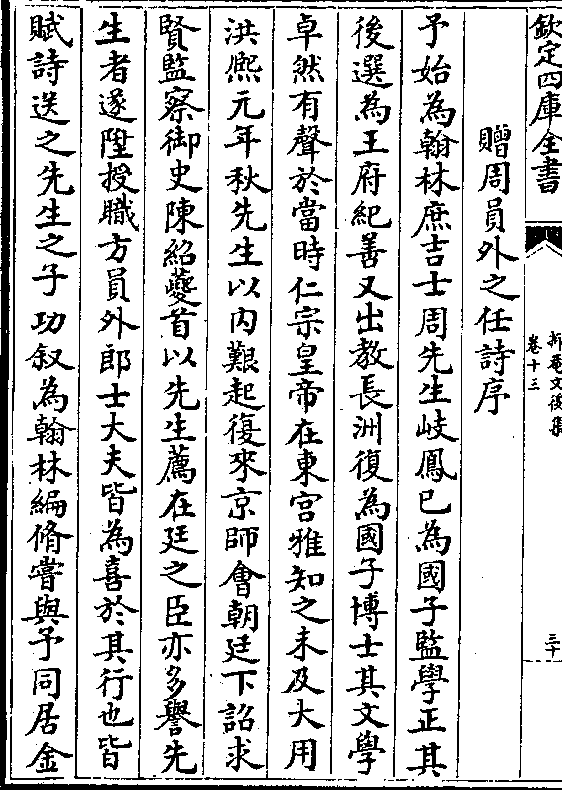 欽定四庫全書
抑菴文後集
卷十三
三十
贈周員外之任詩序
予始為翰林庶吉士周先生岐鳳已為國子監學正其
後選為王府紀善又出教長洲復為國子博士其文學
卓然有聲於當時仁宗皇帝在東宫雅知之未及大用
洪熈元年秋先生以内艱起復來京師會朝廷下詔求
賢監察御史陳紹夔首以先生薦在廷之臣亦多譽先
生者遂陞授職方員外郎士大夫皆為喜於其行也皆
賦詩送之先生之子功叙為翰林編脩嘗與予同居金